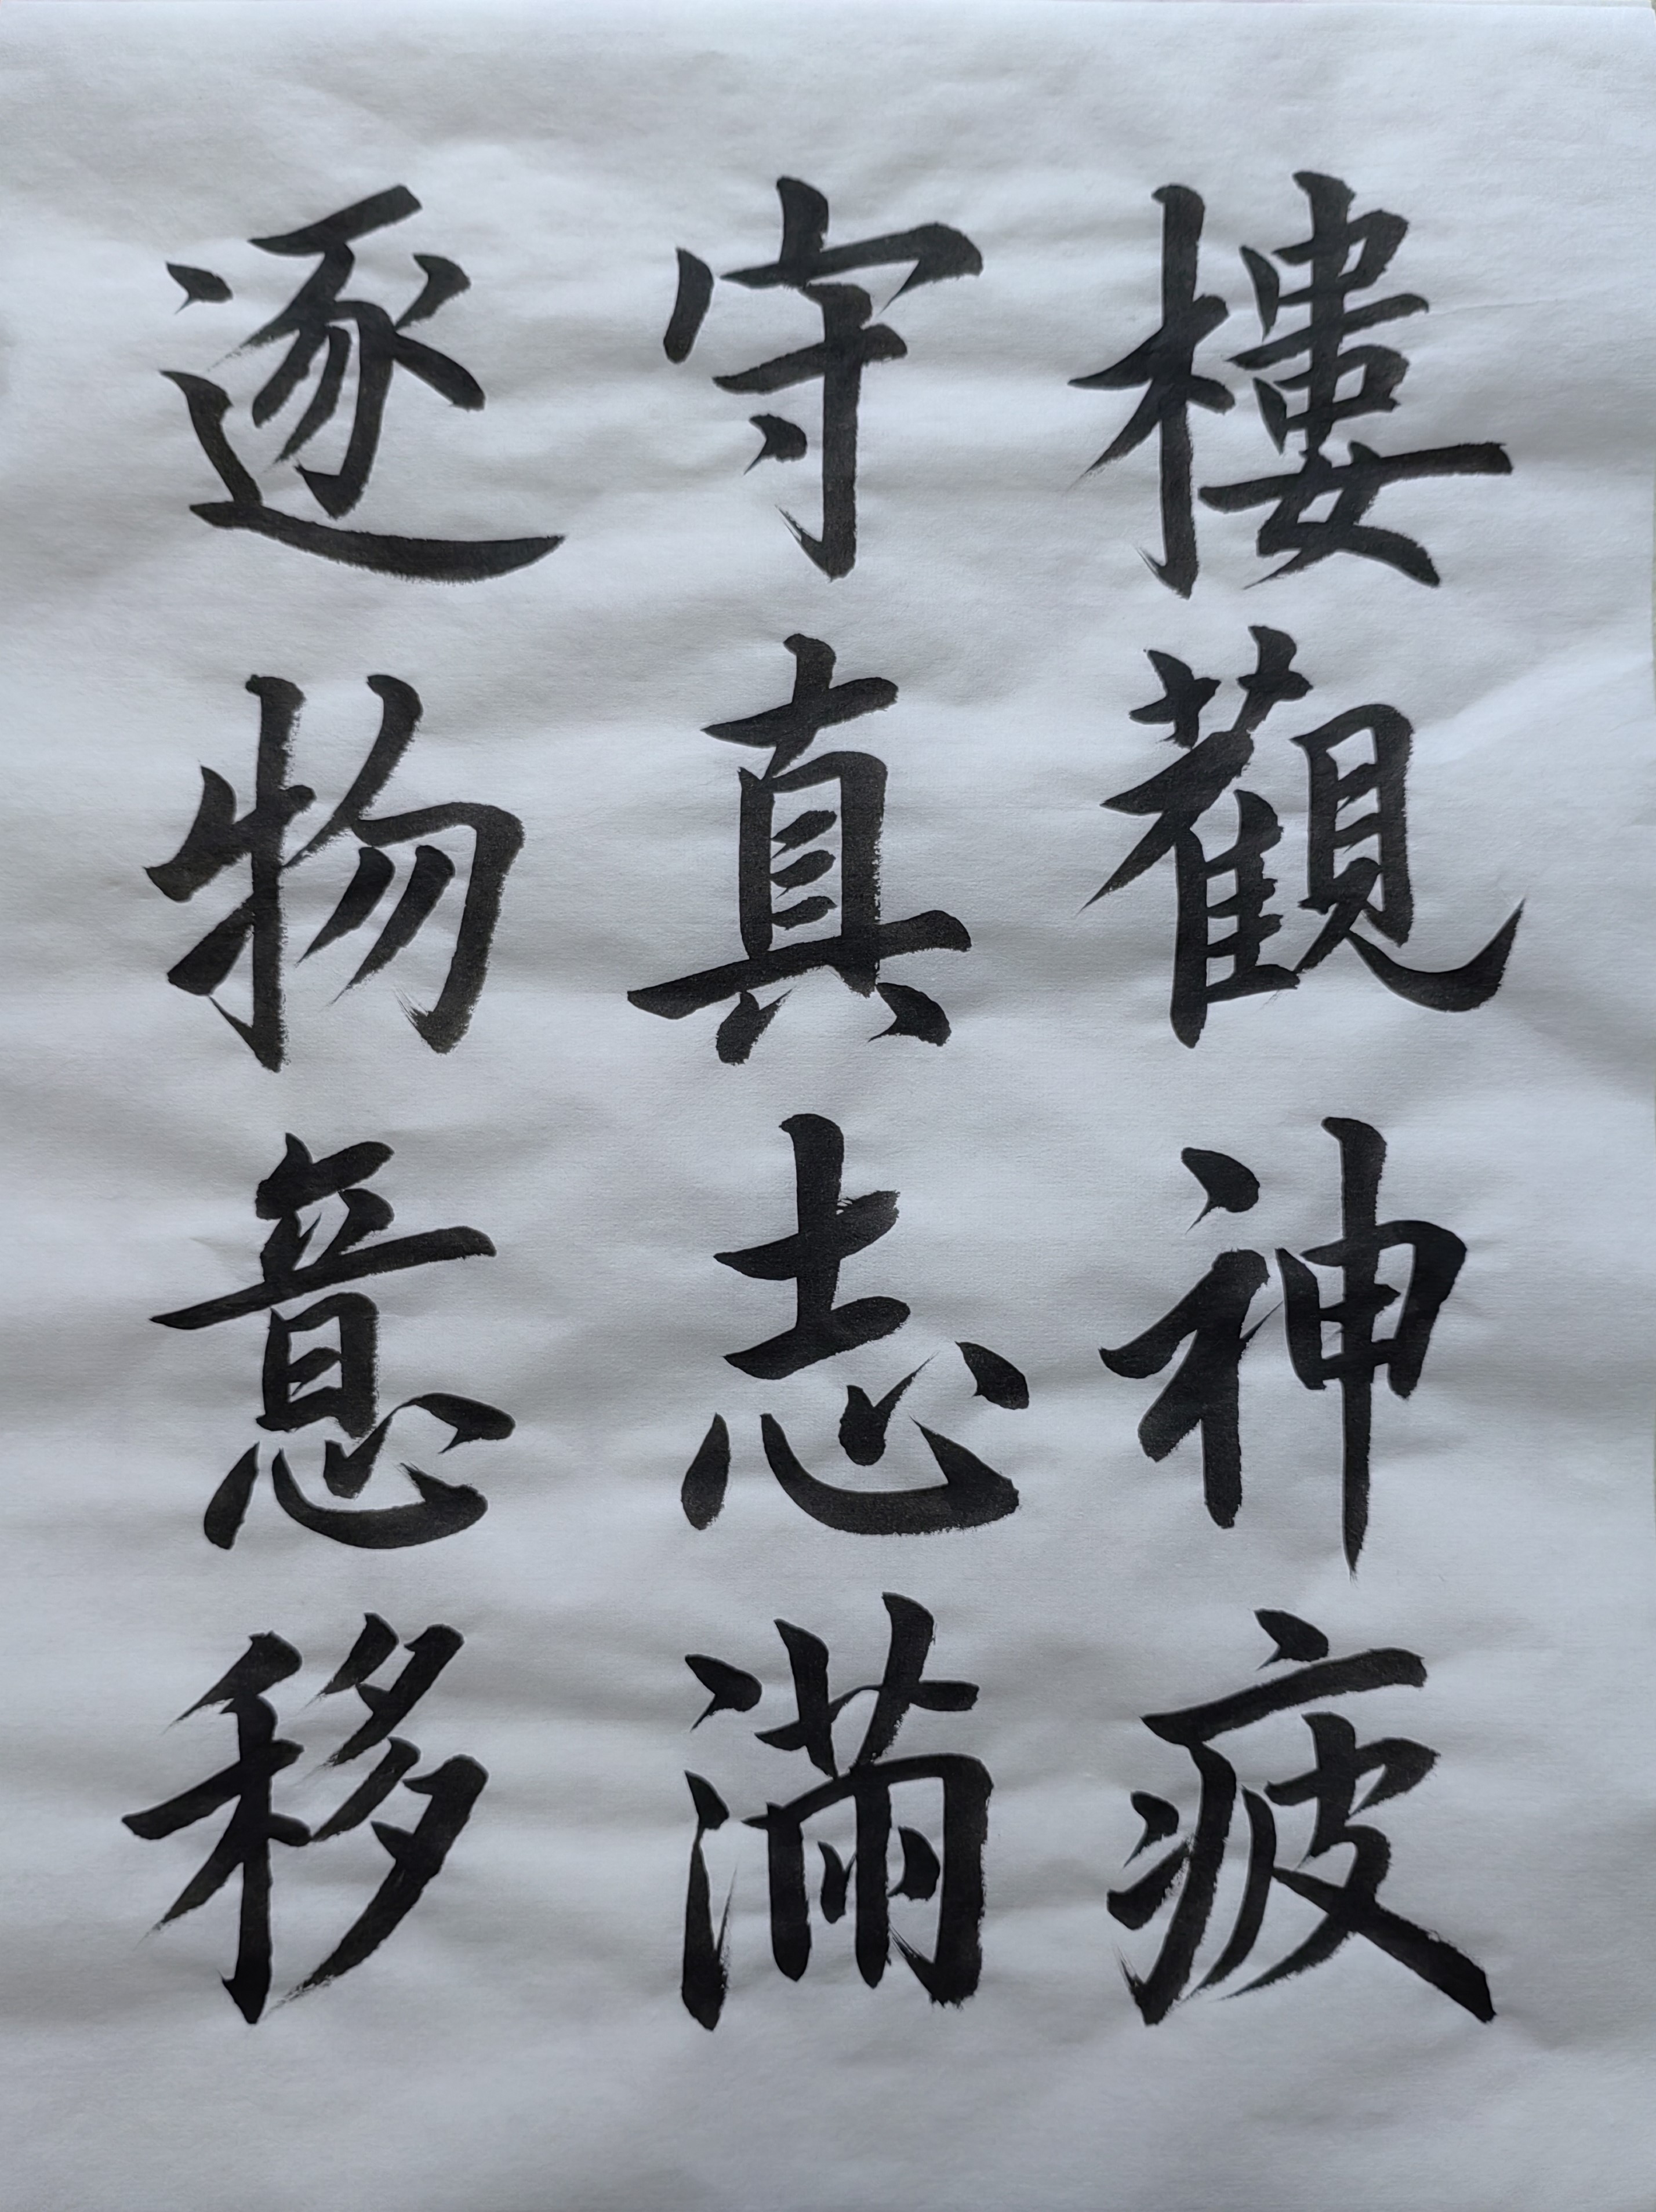 樓觀神疲
守真志滿
逐物意移